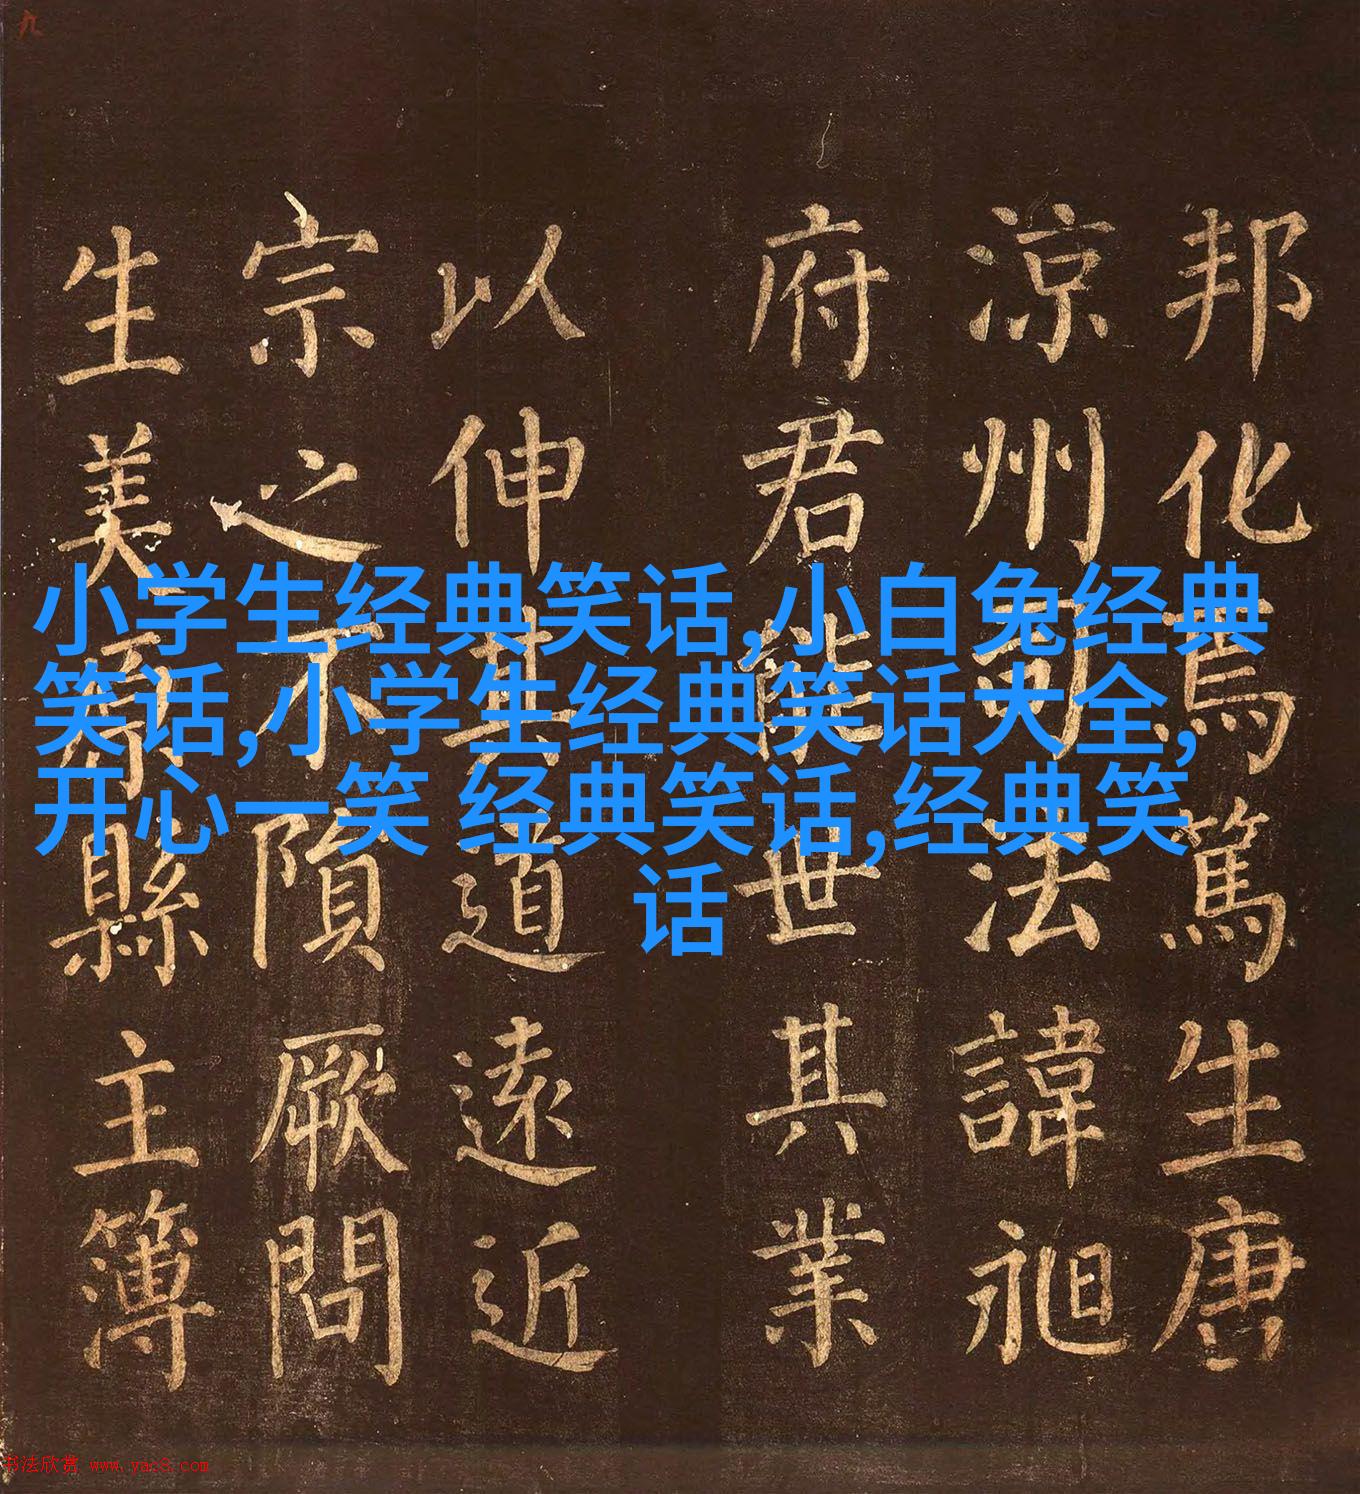 九
邦化焉篤生唐
涼州司法諱昶
府君能世其業
以伸其道遠近
宗之不隕厥問
生美原縣主簿
小学生经典笑话,小白兔经典
笑话,小学生经典笑话大全,
开心一笑 经典笑话,经典笑
话
书法欣赏 www.yac8.com